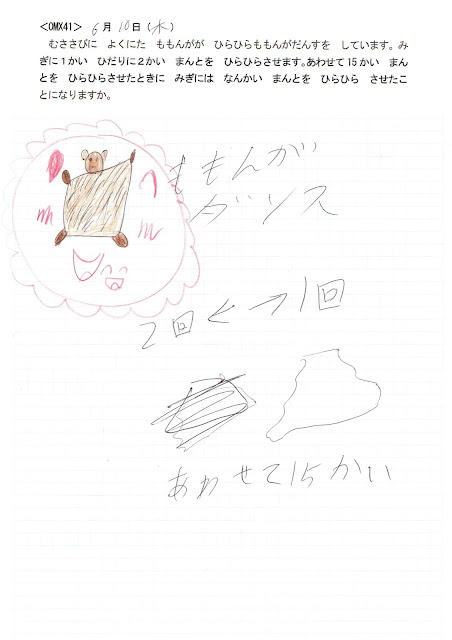 <OMX41> 6月10日(水)
むささびに よくにた ももんがが ひらひらももんがだんすを しています。み
ぎに1かい ひだりに2かい まんとを ひらひらさせます。あわせて15かい まん
とを ひらひらさせたときに みぎには なんかい まんとを ひらひら させたこ
とになりますか。
ももんが
ダンス
2回←→1回
あわせて15かい